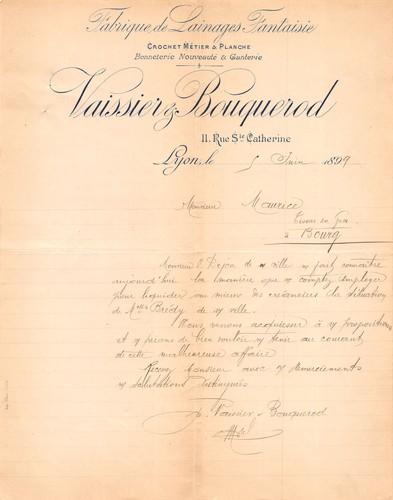 Fabrique de Lainages Fantaisie
CROCHET MÉTIER & PLANCHE
Bonneterie Nouveauté & Ganterie
Vaissier & Bouquerod
11. Rue Ste Catherine
Lyon, le 5 Juin 1899
Monsieur Maurice
à Bourg
Monsieur Dijon de v/ ville n/ fait connaître
aujourd'hui la manière que v/ comptez employer
pour liquider au mieux des créanciers la situation
de Brédy de v/ ville.
Nous venons acquiescer à v/ propositions
et v/ prions de bien vouloir n/ tenir au courant
de cette malheureuse affaire
Recevez Monsieur avec n/ remerciements
n/ salutations distinguées
p. Vaissier & Bouquerod